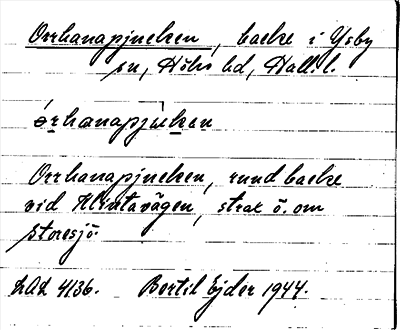 Orrhanapjucken, backe i Ysby
sn, Höks hd, Hall. l.
órhanapjùken
Orrhanapjucken, rund backe
vid Klintavägen, strax ö. om
Storesjö.
LAL 4136. Bertil Ejder 1944.